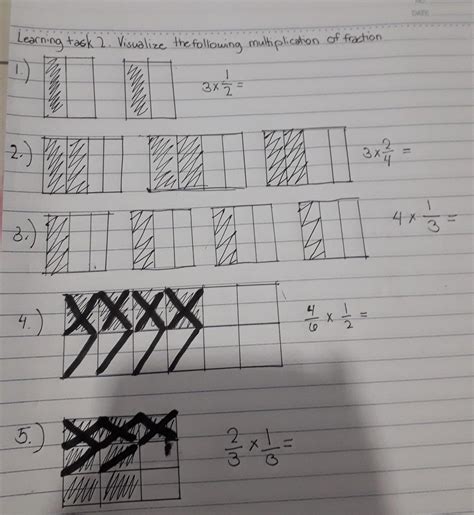 DATE
Learning task 2. Visualize the following multiplication of fraction
1.) 3 x 1/2 =
2.) 3 x 2/4 =
3.) 4 x 1/3 =
4.) 4/6 x 1/2 =
5.) 2/3 x 1/3 =